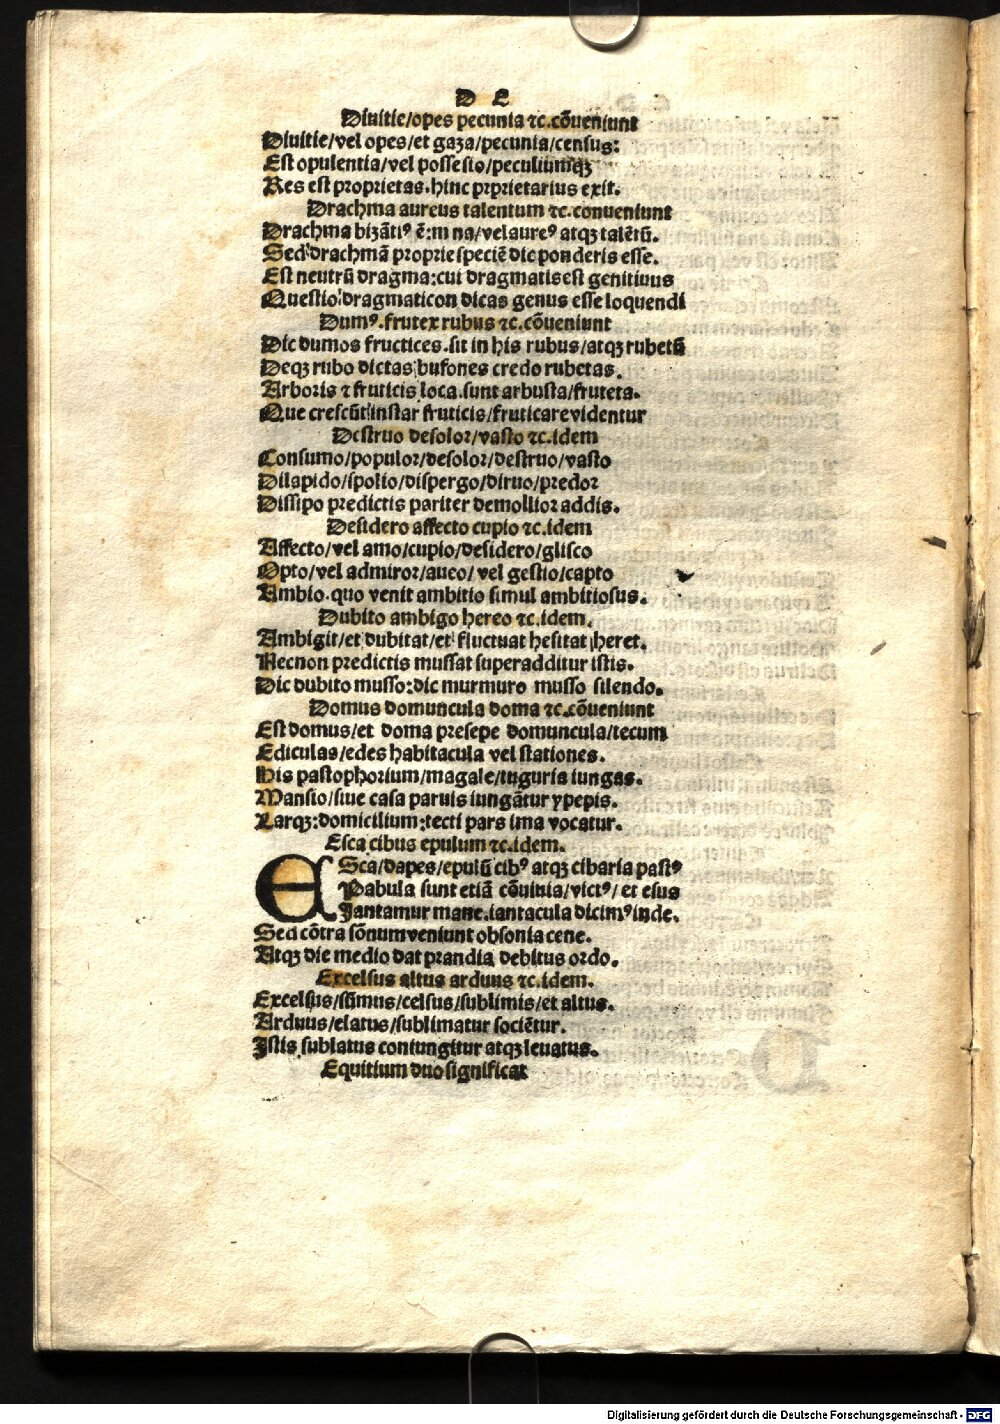 D E
Diuitie/opes pecunia ⁊c.cōueniunt
Diuitie/vel opes/et gaza/pecunia/census:
Est opulentia/vel possesio/peculiumqꝫ
Res est proprietas.hinc prprietarius exit.
Drachma aureus talentum ⁊c.conueniunt
Drachma bizāti⁹ ē:m na/velaure⁹ atqꝫ talētū.
Sed drachmā proprie speciē dic ponderis esse.
Est neutrū dragma:cui dragmatis est genitiuus
Questio dragmaticon dicas genus esse loquendi
Dum⁹.frutex rubus ⁊c.cōueniunt
Dic dumos fructices.sit in his rubus/atqꝫ rubetū
Deqꝫ rubo dictas bufones credo rubetas.
Arboris ⁊ fruticis loca.sunt arbusta/fruteta.
Que crescūt instar fruticis/fruticare videntur
Destruo desolor/vasto ⁊c.idem
Consumo/populor/desolor/destruo/vasto
Dilapido/spolio/dispergo/diruo/predor
Dissipo predictis pariter demollior addis.
Desidero affecto cupio ⁊c.idem
Affecto/vel amo/cupio/desidero/glisco
Opto/vel admiror/aueo/vel gestio/capto
Ambio.quo venit ambitio simul ambitiosus.
Dubito ambigo hereo ⁊c.idem.
Ambigit/et dubitat/et fluctuat hesitat heret.
Necnon predictis mussat superadditur istis.
Dic dubito musso:dic murmuro musso silendo.
Domus domuncula doma ⁊c.cōueniunt
Est domus/et doma presepe domuncula/tecum
Ediculas/edes habitacula vel stationes.
His pastophorium/magale/tuguria iungas.
Mansio/siue casa paruis iungātur ypepis.
Larqꝫ:domicilium:tecti pars ima vocatur.
Esca cibus epulum ⁊c.idem.
ESca/dapes/epulū cib⁹ atqꝫ cibaria past⁹
Pabula sunt etiā cōuiuia/vict⁹/et esus
Iantamur mane.iantacula dicim⁹ inde.
Sed cōtra sōnum veniunt obsonia cene.
Atqꝫ die medio dat prandia debitus ordo.
Excelsus altus arduus ⁊c.idem.
Excelsus/sūmus/celsus/sublimis/et altus.
Arduus/elatus/sublimatur sociētur.
Istis sublatus coniungitur atqꝫ leuatus.
Equitium duo significat
Digitalisierung gefördert durch die Deutsche Forschungsgemeinschaft - DFG